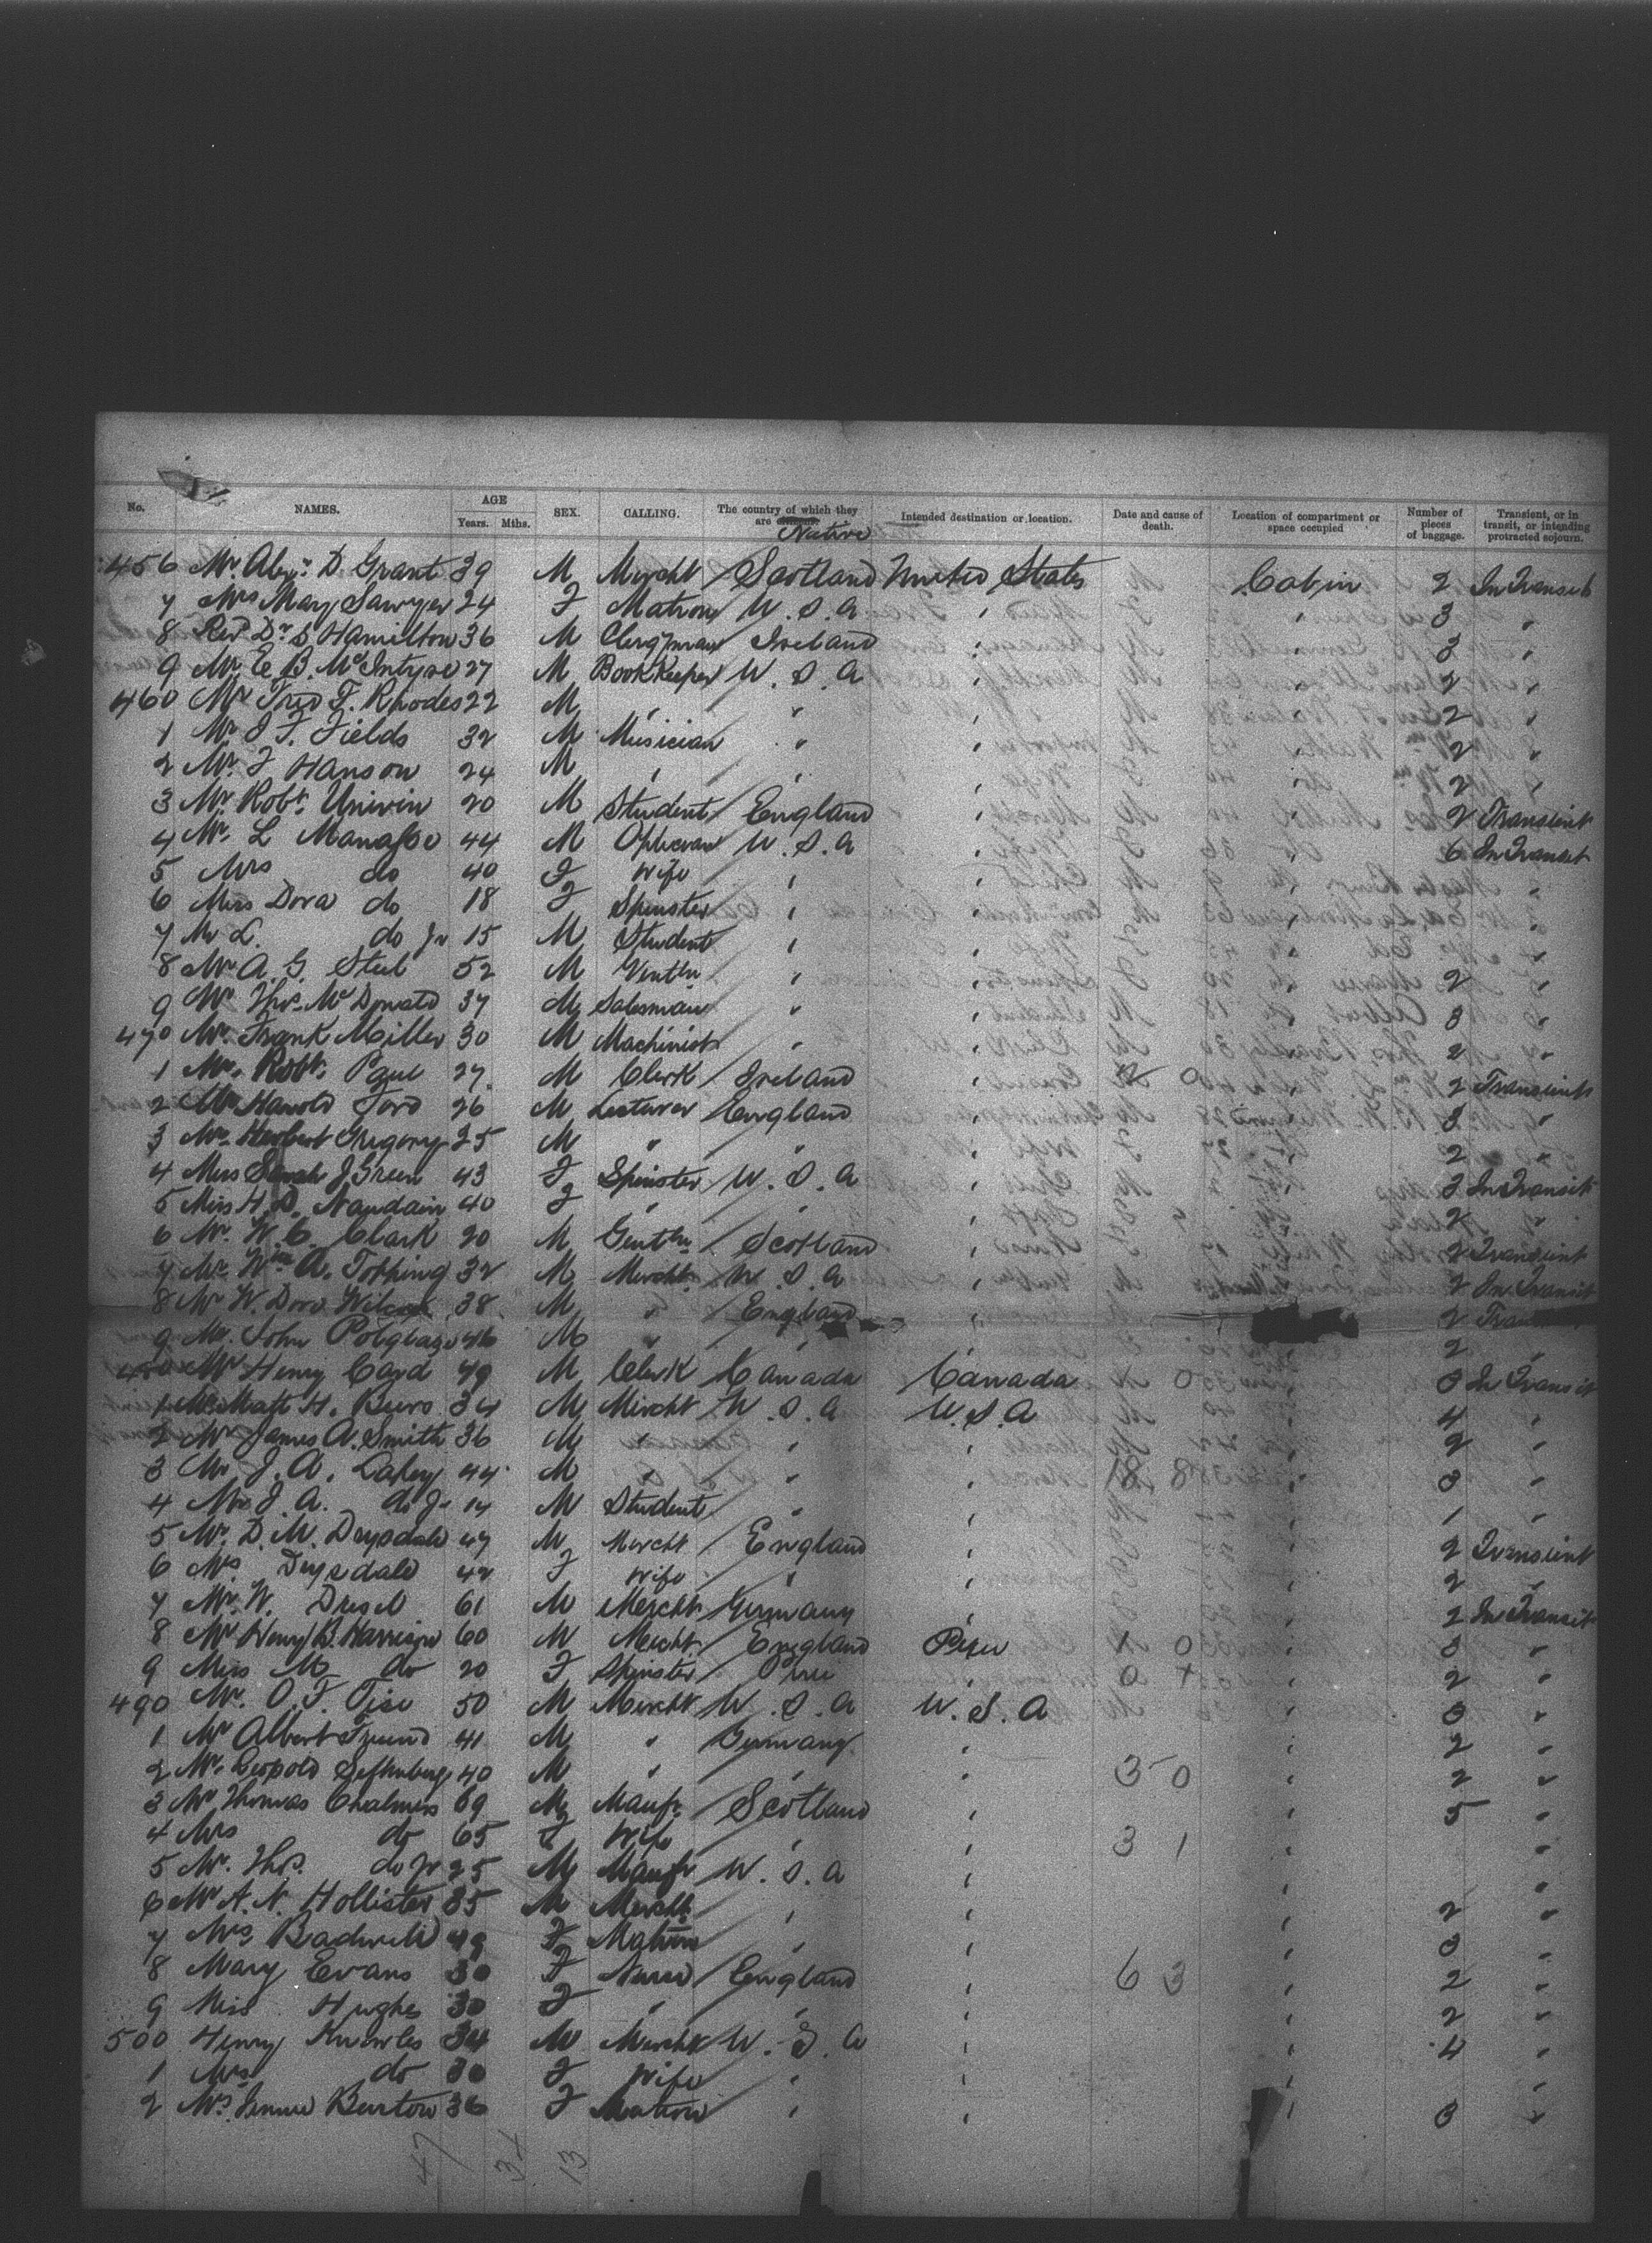 No. NAMES. AGE Years. Mths. SEX. CALLING. The country of which they are Native Intended destination or location. Date and cause of death. Location of compartment or space occupied Number of pieces of baggage. Transient, or in transit, or intending protracted sojourn.
456 Mr. Alexr. D. Grant 39 M Mercht Scotland United States Cabin 2 In Transit
7 Mrs Mary Sawyer 24 F Matron U.S.A " " 3 "
8 Revd Dr. S. Hamilton 36 M Clergyman Ireland " " 3 "
9 Mr. E. B. McIntyre 27 M Bookkeeper U.S.A " " 2 "
460 Mr Fred F. Rhodes 22 M " " " " 2 "
1 Mr. J. F. Fields 32 M Musician " " " 2 "
2 Mr. F Hanson 24 M " " " " 2 "
3 Mr. Robt. Unwin 20 M Student England " " 2 Transient
4 Mr. L 44 M Optician U.S.A " " 6 In Transit
5 Mrs do 40 F Wife " " " "
6 Miss Dora do 18 F Spinster " " " "
7 Mr L. do Jr 15 M Student " " " "
8 Mr. A. G. Steel 52 M Gentln " " " 2 "
9 Mr Thos. McDonald 37 M Salesman " " " 3 "
470 Mr. Frank Miller 30 M Machinist " " " 2 "
1 Mr. Robt. 27 M Clerk Ireland " " 2 Transient
2 Mr Harold Ford 26 M Lecturer England " " 3 "
3 Mr. Herbert Gregory 25 M " " " " 2 "
4 Miss Sarah J. Green 43 F Spinster U.S.A " " 3 In Transit
5 Miss H. D. Naudain 40 F " " " " 2 "
6 Mr. W. C. Clark 20 M Gentln Scotland " " 2 Transient
7 Mr. Wm. A. Topping 32 M Mercht U.S.A " " 2 In Transit
8 Mr W. 38 M " England " " 2
9 Mr. John Polglaze 46 M " " " " 2 "
480 Mr Henry Card 49 M Clerk Canada Canada " 3 In Transit
1 Mr. Matt H. 34 M Mercht U.S.A U.S.A " 4 "
2 Mr James A. Smith 36 M " " " " 2 "
3 Mr J. A. 44 M " " " 18 8 " 3 "
4 Mr J. A. do Jr 14 M Student " " " 1 "
5 Mr. D. M. Drysdale 47 M Mercht England " " 2 Transient
6 Mrs. Drysdale 42 F Wife " " " 2 "
7 Mr. W. Dresel 61 M Mercht Germany " " 2 In Transit
8 Mr Henry B. Harrison 60 M Mercht England Peru 1 0 " 3 "
9 Miss M do 20 F Spinster Peru " " 2 "
490 Mr. O. F. 50 M Mercht U.S.A U.S.A " 3 "
1 Mr Albert Freund 41 M " Germany " " 2 "
2 Mr. Leopold 40 M " " " 3 0 " 2 "
3 Mr Thomas Chalmers 69 M Manfr. Scotland " " 5 "
4 Mrs do 65 F Wife " " 3 1 " "
5 Mr. Thos. do Jr 25 M Manfr U.S.A " " "
6 Mr A. N. Hollister 35 M Mercht " " " 2 "
7 Mrs 49 F Matron " " " 3 "
8 Mary Evans 30 F Nurse England " 6 3 " 2 "
9 Miss Hughes 30 F " " " " 2 "
500 Henry Knowles 34 M Mercht U.S.A " " 4 "
1 Mrs do 30 F Wife " " " "
2 Mrs. Jennie Burton 36 F Matron " " " 3 "
47 34 13